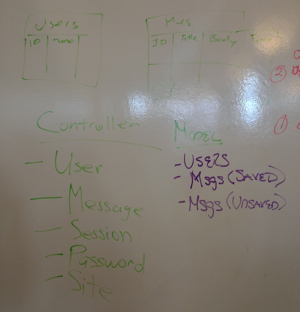 Users
ID Name
Msgs
ID Title Body
Controller
- User
- Message
- Session
- Password
- Site
Model
- Users
- Msgs (Saved)
- Msgs (Unsaved)
②
①